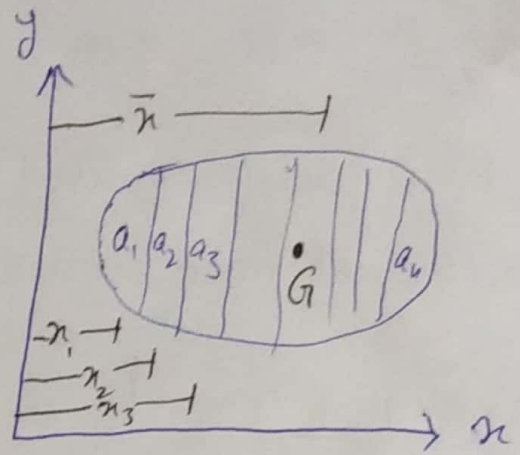 y
x̄
a₁ a₂ a₃ G aₙ
x₁
x₂
x₃
x